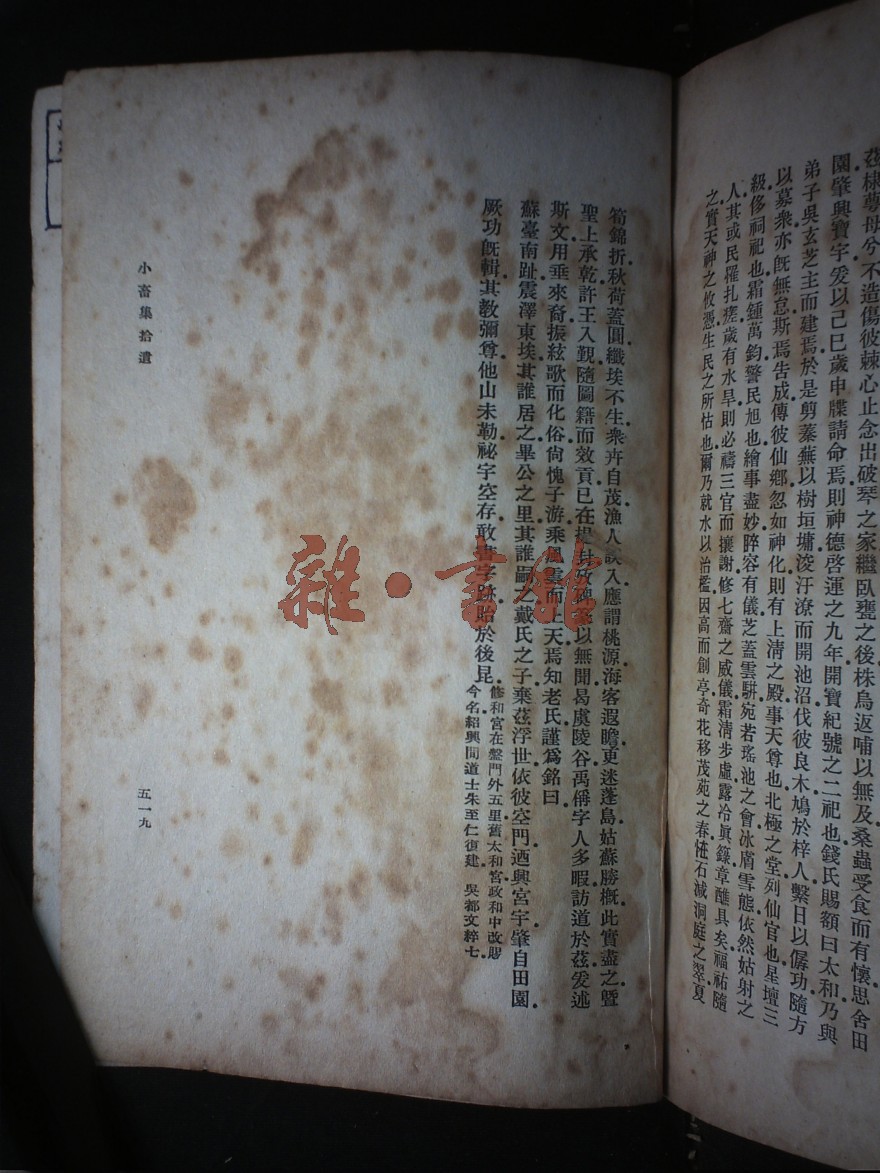 茲棣萼母兮不造傷彼棘心止念出破琴之家繼臥甕之後株烏返哺以無及桑蟲受食而有懷思舍田
園肇興寶宇爰以己巳歲申牒請命焉則神德啓運之九年開寶紀號之二祀也錢氏賜額曰太和乃與
弟子吳玄芝主而建焉於是剪蓁蕪以樹垣墉浚汙潦而開池沼伐彼良木鳩於梓人繫日以僝功隨方
以募衆亦旣無怠斯焉告成傳彼仙鄕忽如神化則有上淸之殿事天尊也北極之堂列仙官也星壇三
級侈祠祀也霜鍾萬鈞警民旭也繪事盡妙睟容有儀芝蓋雲騈宛若瑤池之會冰膚雪態依然姑射之
人其或民罹扎瘥歲有水旱則必禱三官而攘謝修七齋之威儀霜淸步虛露冷眞籙章醮具矣福祐隨
之實天神之攸憑生民之所怙也爾乃就水以治檻因高而創亭奇花移茂苑之春恠石減洞庭之翠夏
筍錦折秋荷蓋圓纖埃不生衆卉自茂漁人誤入應謂桃源海客遐瞻更迷蓬島姑蘇勝槪此實盡之曁
聖上承乾許王入覲隨圖籍而效貢已在提封故碑篆以無聞曷虞陵谷禹偁字人多暇訪道於茲爰述
斯文用垂來裔振絃歌而化俗尙愧子游乘風雲而上天焉知老氏謹爲銘曰
蘇臺南趾震澤東埃其誰居之畢公之里其誰嗣之戴氏之子棄茲浮世依彼空門迺興宮宇肇自田園
厥功旣輯其敎彌尊他山未勒祕宇空存敢書字跡貽於後昆
修和宮在盤門外五里舊太和宮政和中改賜
今名紹興間道士朱至仁復建 吳都文粹七
小畜集拾遺
五一九
雜·書館